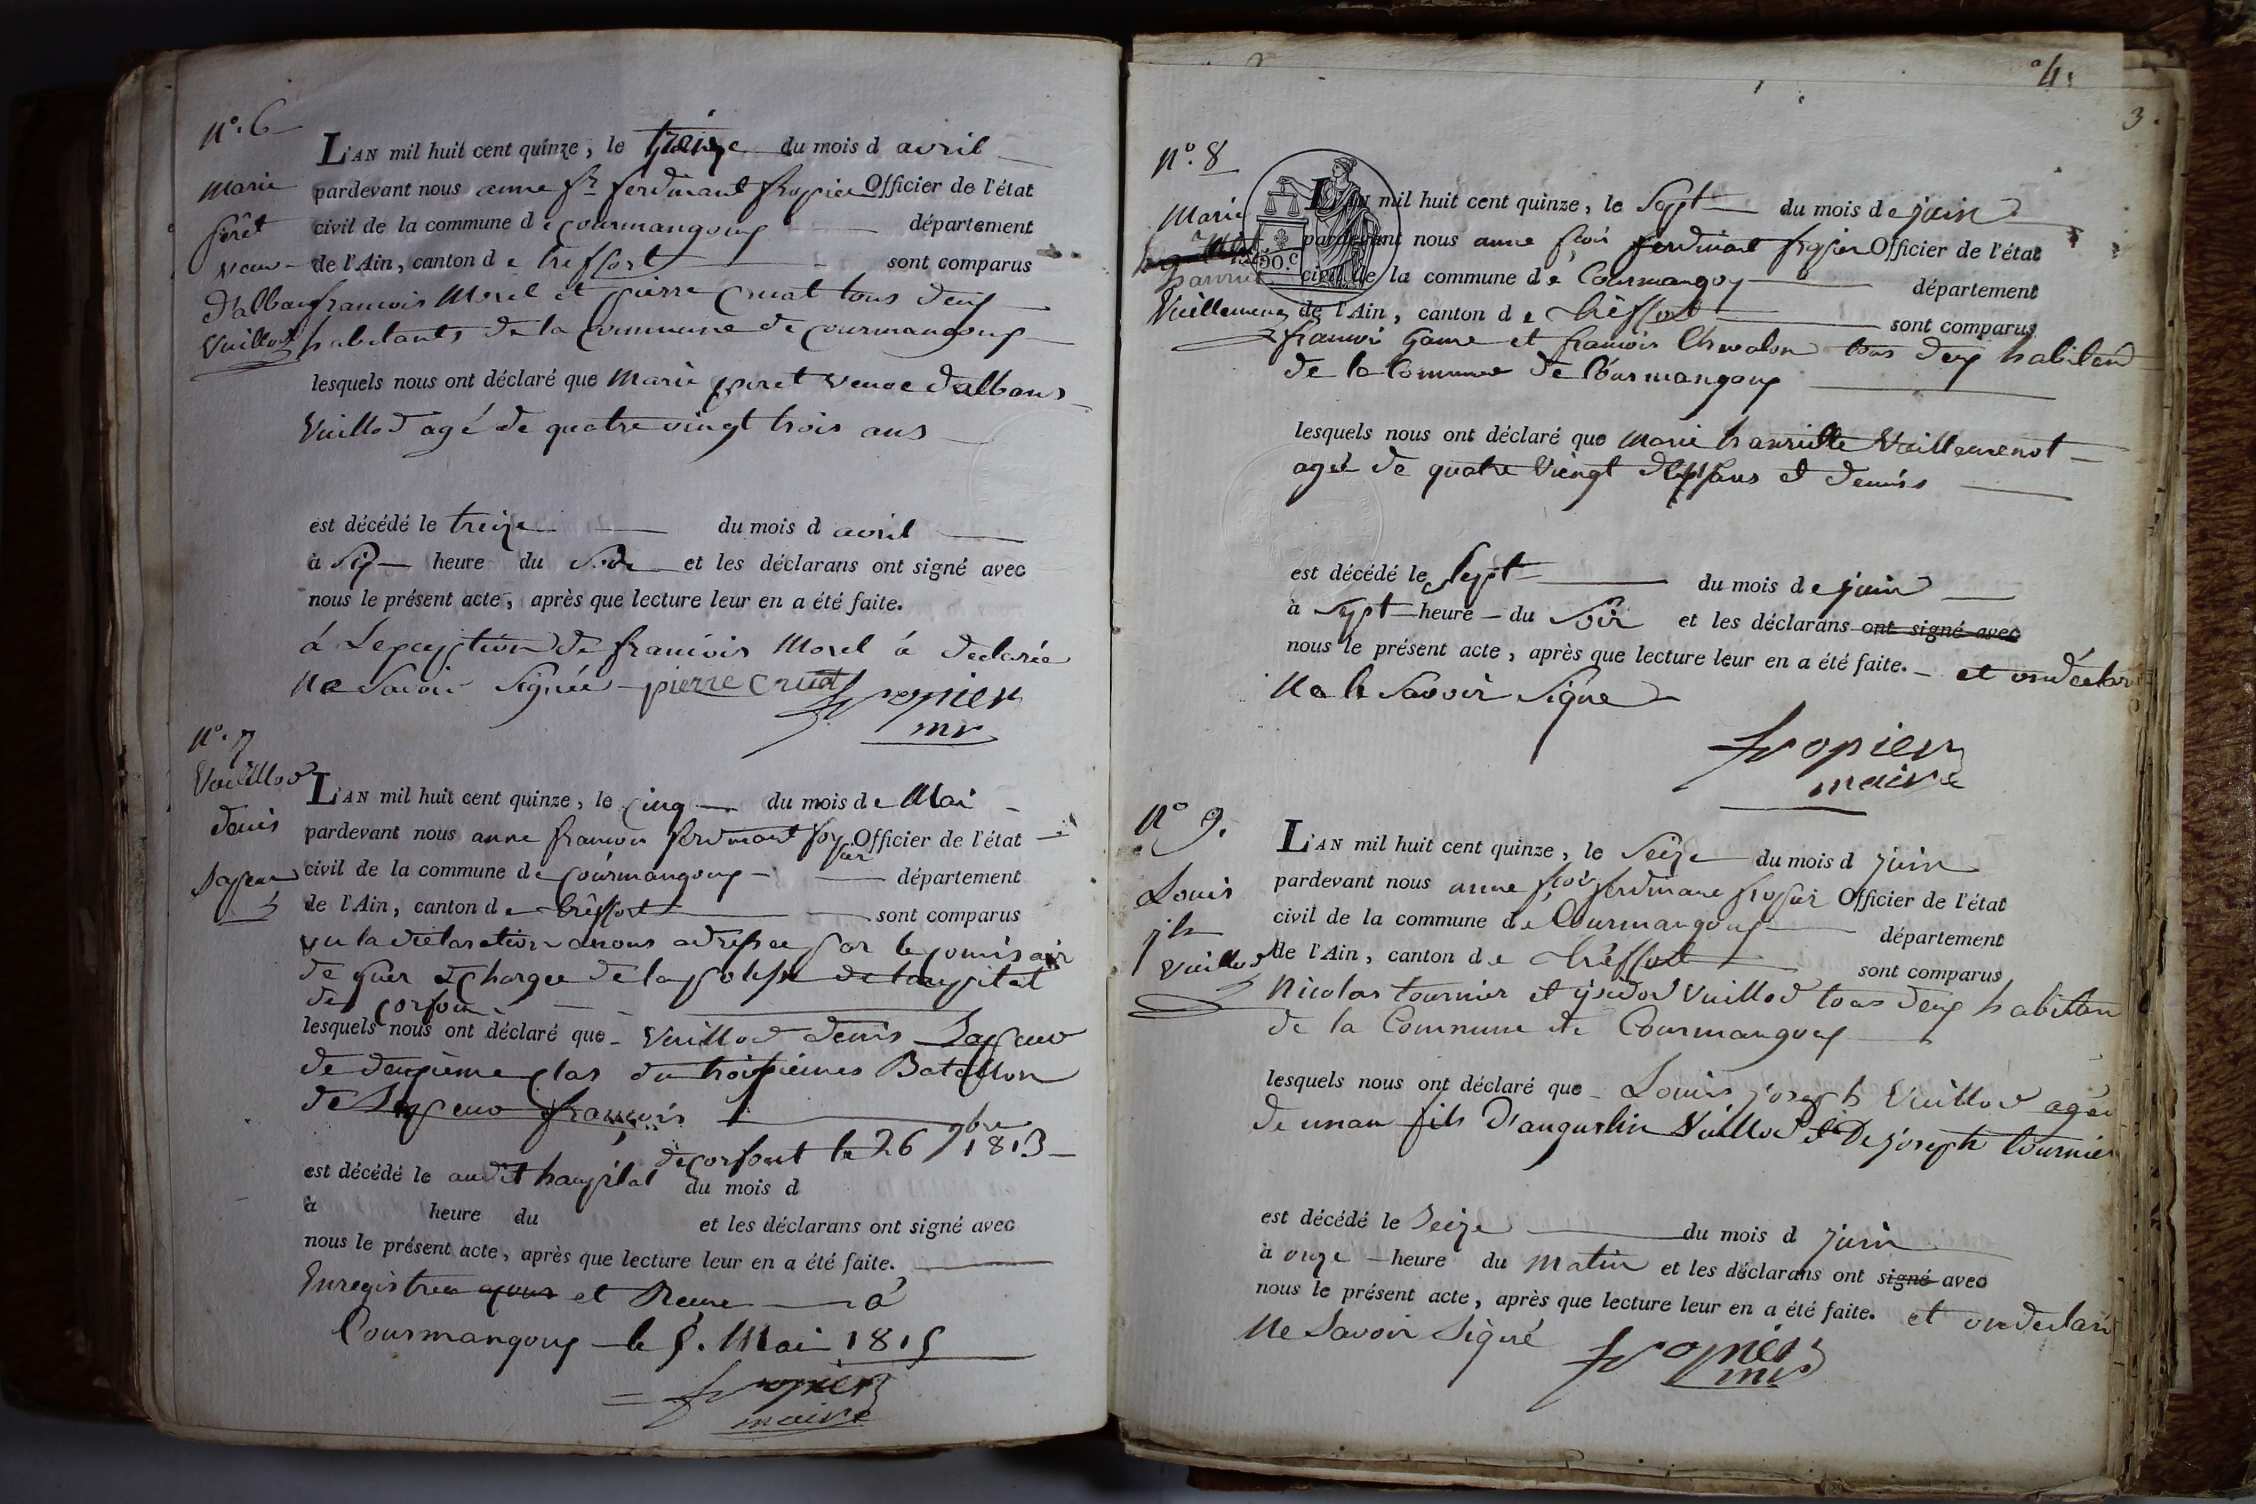 N°. 6
Marie
peret
veuve
d'alban
Vuillod
L'AN mil huit cent quinze, le treize du mois d avril
pardevant nous anne fr ferdinant fropier Officier de l'état
civil de la commune d e Courmangoux département
de l'Ain, canton d e treffort sont comparus
francois Morel et pierre Cruat tous deux
habitants de la Commune de Courmangoux
lesquels nous ont déclaré que Marie peret veuve d'albans
Vuillod agé de quatre vingt trois ans
est décédé le treize du mois d avril
à six heure du Soir et les déclarans ont signé avec
nous le présent acte, après que lecture leur en a été faite.
á Lexception de francois Morel á declarée
Ne Savoir Signée pierre cruat
fropier
mr
N°. 7
Vuillod
denis
Sapeur
L'AN mil huit cent quinze, le Cinq du mois d e Mai
pardevant nous anne francois ferdinant fropier Officier de l'état
civil de la commune d e Courmangoux département
de l'Ain, canton d e trêffort sont comparus
vu la déclaration anous adressee par le comisair
de guer chargee de la police de laupital
de corfou
lesquels nous ont déclaré que Vuillod denis Sapeur
de deuxième clas du troisiemes Bataillon
de Sapeur françois
est décédé le audit haupital de corfout le 26 7bre 1813
du mois d
à heure du et les déclarans ont signé avec
nous le présent acte, après que lecture leur en a été faite.
Enregistrea et Remi á
Courmangoux le 5. Mai 1815
fropier
maire
4
3.
N°. 8
Marie
hanrie
Vuillemenot
90. C
L'AN mil huit cent quinze, le Sept du mois d e juin
pardevant nous anne fçois ferdinant fropier Officier de l'état
civil de la commune d e Courmangoux département
de l'Ain, canton d e trêffort sont comparus
francois Game et francois Chevalon tous deux habitend
de la Commune de Courmangoux
lesquels nous ont déclaré que Marie hanriette Vuillemenot
agée de quatre Vingt ans et demis
est décédé le Sept du mois d e juin
à Sept heure du Soir et les déclarans ont signé avec
nous le présent acte, après que lecture leur en a été faite. et on déclare
Ne le Savoir Signe
fropier
maire
N° 9.
Louis
jh
Vuillod
L'AN mil huit cent quinze, le Seize du mois d juin
pardevant nous anne fçois ferdinane fropier Officier de l'état
civil de la commune d e Courmangoux département
de l'Ain, canton d e trêffort sont comparus
Nicolas tournier et ysidor Vuillod tous deux habitan
de la Commune de Courmangoux
lesquels nous ont déclaré que Louis joseph Vuillod agée
de un an fils D'augustin Vuillod et De joseph tournier
est décédé le Seize du mois d juin
à onze heure du Matin et les déclarans ont signé avec
nous le présent acte, après que lecture leur en a été faite. et on declaré
Ne Savoir Signé
fropier
mr